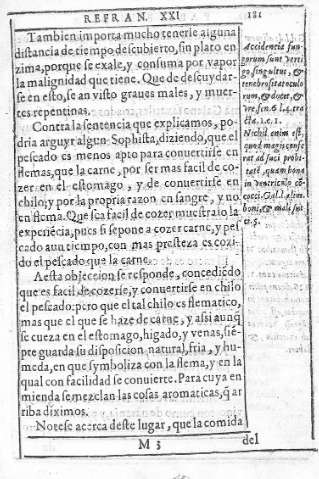 REFRAN. XXI
181
Tambien importa mucho tenerle alguna
distancia de tiempo descubierto, sin plato en
zima, porque se exale, y consuma por vapor
la malignidad que tiene. Que de descuydar-
se en esto, se an visto graues males, y muer-
tes repentinas.
Contra la sentencia que explicamos, po-
dria arguyr algun Sophista, diziendo, que el
pescado es menos apto para conuertirse en
flemas, que la carne, por ser mas facil de co-
zer en el estomago, y de conuertirse en
chilo; y por la propria razon en sangre, y no
en flema. Que sea facil de cozer muestralo la
experiécia, pues si se pone a cozer carne, y pes
cado aun tiempo, con mas presteza es cozi-
do el pescado que la carne.
A esta objeccion se responde, concediédo
que es facil de cozerse, y conuertirse en chilo
el pescado: pero que el tal chilo es flematico,
mas que el que se haze de carne, y assi aunq̃
se cueza en el estomago, higado, y venas, sié-
pre guarda su disposicion natural, fria, y hu-
meda, en que symboliza con la flema, y en la
qual con facilidad se conuierte. Para cuya en
mienda se mezclan las cosas aromaticas, q̃ ar
riba diximos.
Notese acerca deste lugar, que la comida
M 3
del
Accidentia
sunt verti
go, singultus, &
tenebrositas oculo
rum, &
lib. 4. tra
cta. 2. c. 1.
Nichil enim est,
quod magis
quam bona
in ventriculo
&
c. 5.